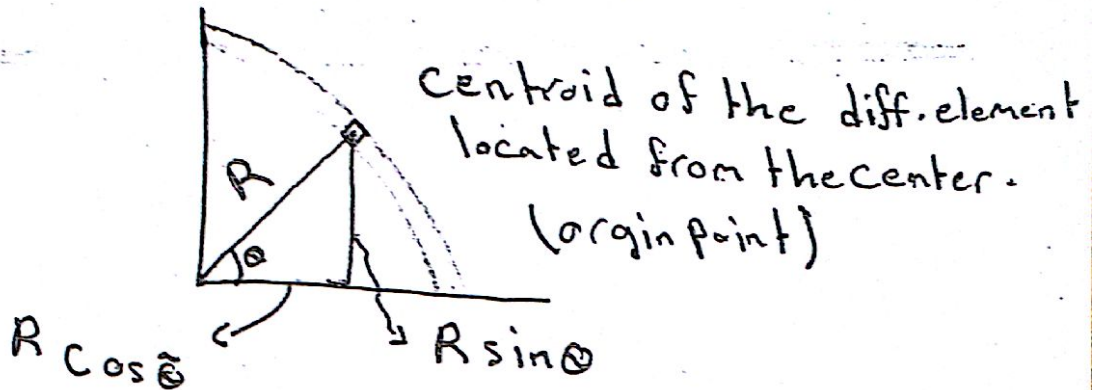 Centroid of the diff. element
located from the center.
(orgin point)
R
θ
R Cosθ
R sinθ